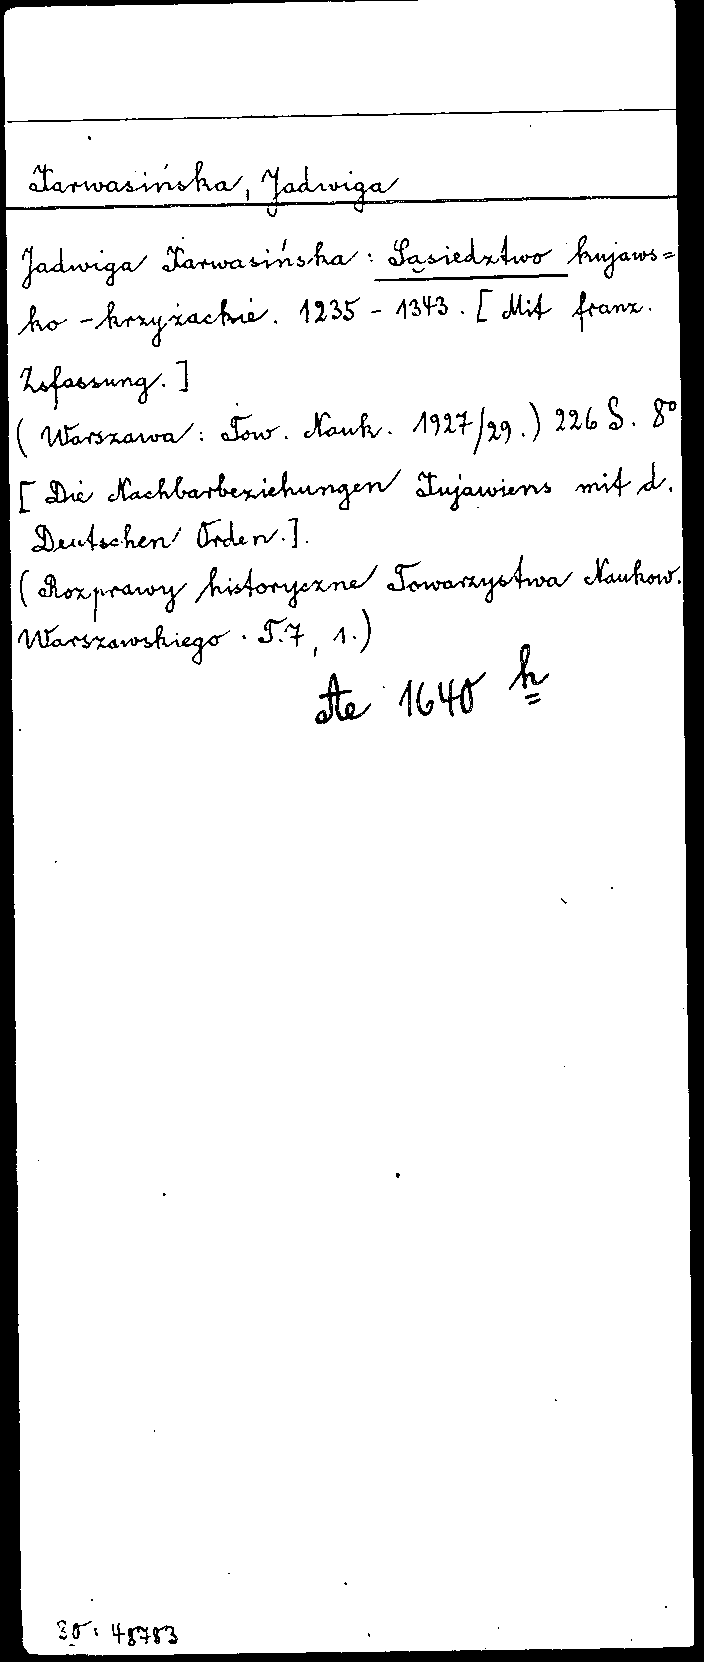 Karwasińska, Jadwiga
Jadwiga Karwasińska: Sąsiedztwo kujaws=
ko-krzyżackie. 1235-1343. [Mit franz.
Zsfassung.]
(Warszawa: Tow. Nauk. 1927/29.) 226 S. 8°
[Die Nachbarbeziehungen Kujawiens mit d.
Deutschen Orden.].
(Rozprawy historyczne Towarzystwa Naukow.
Warszawskiego. T.7, 1.)
Ae 1640 h
30: 48783